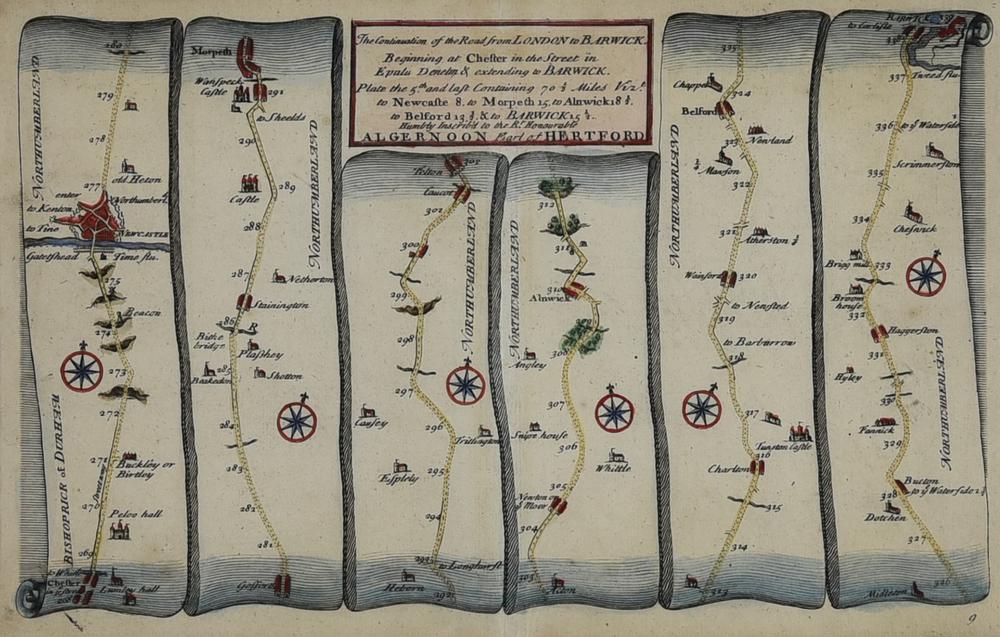 The Continuation of the Road from LONDON to BARWICK.
Beginning at Chester in the Street in
Epatu Denetm & extending to BARWICK.
Plate the 5th and last Containing 70 ½ Miles Viz!
to Newcastle 8. to Morpeth 15. to Alnwick 18 ¾.
to Belford 13 ¾. & to BARWICK 15 ¼.
Humbly Inscrib'd to the Rt. Honourable
ALGERNOON Earl of HERTFORD
280
279
278
NORTHUMBERLAND
old Heton
277
enter
Northumberl.
to Kenton
to Tine
NEWCASTLE
Gateshead
Tine flu.
275
Beacon
274
273
272
271
Buckley or
Birtley
270
Peloo hall
BISHOPRICK of DURHAM
269
Chester
in ye street
Lumley hall
268
Morpeth
Wanspeck
Castle
291
to Sheelds
290
NORTHUMBERLAND
289
Castle
288
287
Netherton
Stainington
286
R
Bithe
bridge
Plashey
285
Baskedon
Shotton
284
283
282
281
Gosford
303
Felton
Caucot
302
NORTHUMBERLAND
300
299
298
297
Causey
296
Trithington
295
Espley
294
293
to Longhurst
Heborn
292
312
NORTHUMBERLAND
311
310
Alnwick
308
Angley
307
Snipe house
306
Whittle
305
Newton on
ye Moor
304
303
Acton
325
Chappel
324
Belford
323
Newland
¾ Mawson
NORTHUMBERLAND
322
321
Atherston ½
Wainford
320
to Nensted
319
to Barburrow
318
317
Tunston Castle
316
Charlton
315
314
313
BARWICK
to Carlisle
338
Tweed flu.
337
336
to ye Waterside
Scrimmerston
335
334
Chesnick
Brigg mill
333
Broom
house
332
Haggerston
331
Hyley
330
NORTHUMBERLAND
Fannick
329
Bucton
to ye Waterside 2 ½
328
Dotchen
327
Midleton
326
9